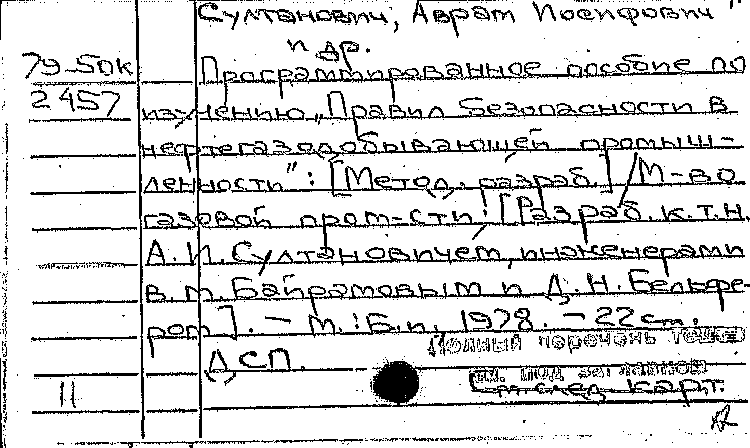 Султанович, Аврам Иосифович
и др.
79-50к
2457
Программированное пособие по
изучению „Правил безопасности в
нефтегазодобывающей промыш-
ленности": [Метод. разраб.] / М-во
газовой пром-сти; [Разраб. к.т.н.
А. И. Султановичем, инженерами
В. М. Байрамовым и Д. Н. Бельфе-
ром]. - М.: Б.и, 1978. - 22 см.
ДСП.
Полный перечень
см. под заглавной
См след карт.
11